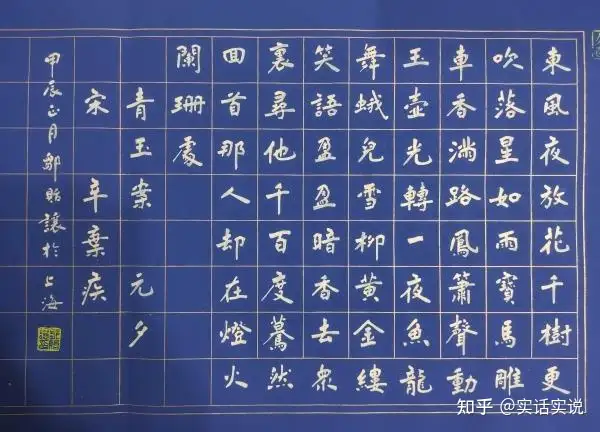 東風夜放花千樹更
吹落星如雨寶馬雕
車香滿路鳳簫聲動
玉壺光轉一夜魚龍
舞蛾兒雪柳黃金縷
笑語盈盈暗香去衆
裏尋他千百度驀然
回首那人却在燈火
闌珊處
青玉案 元夕
宋 辛棄疾
甲辰正月鄒貽讓於上海
知乎 @实话实说